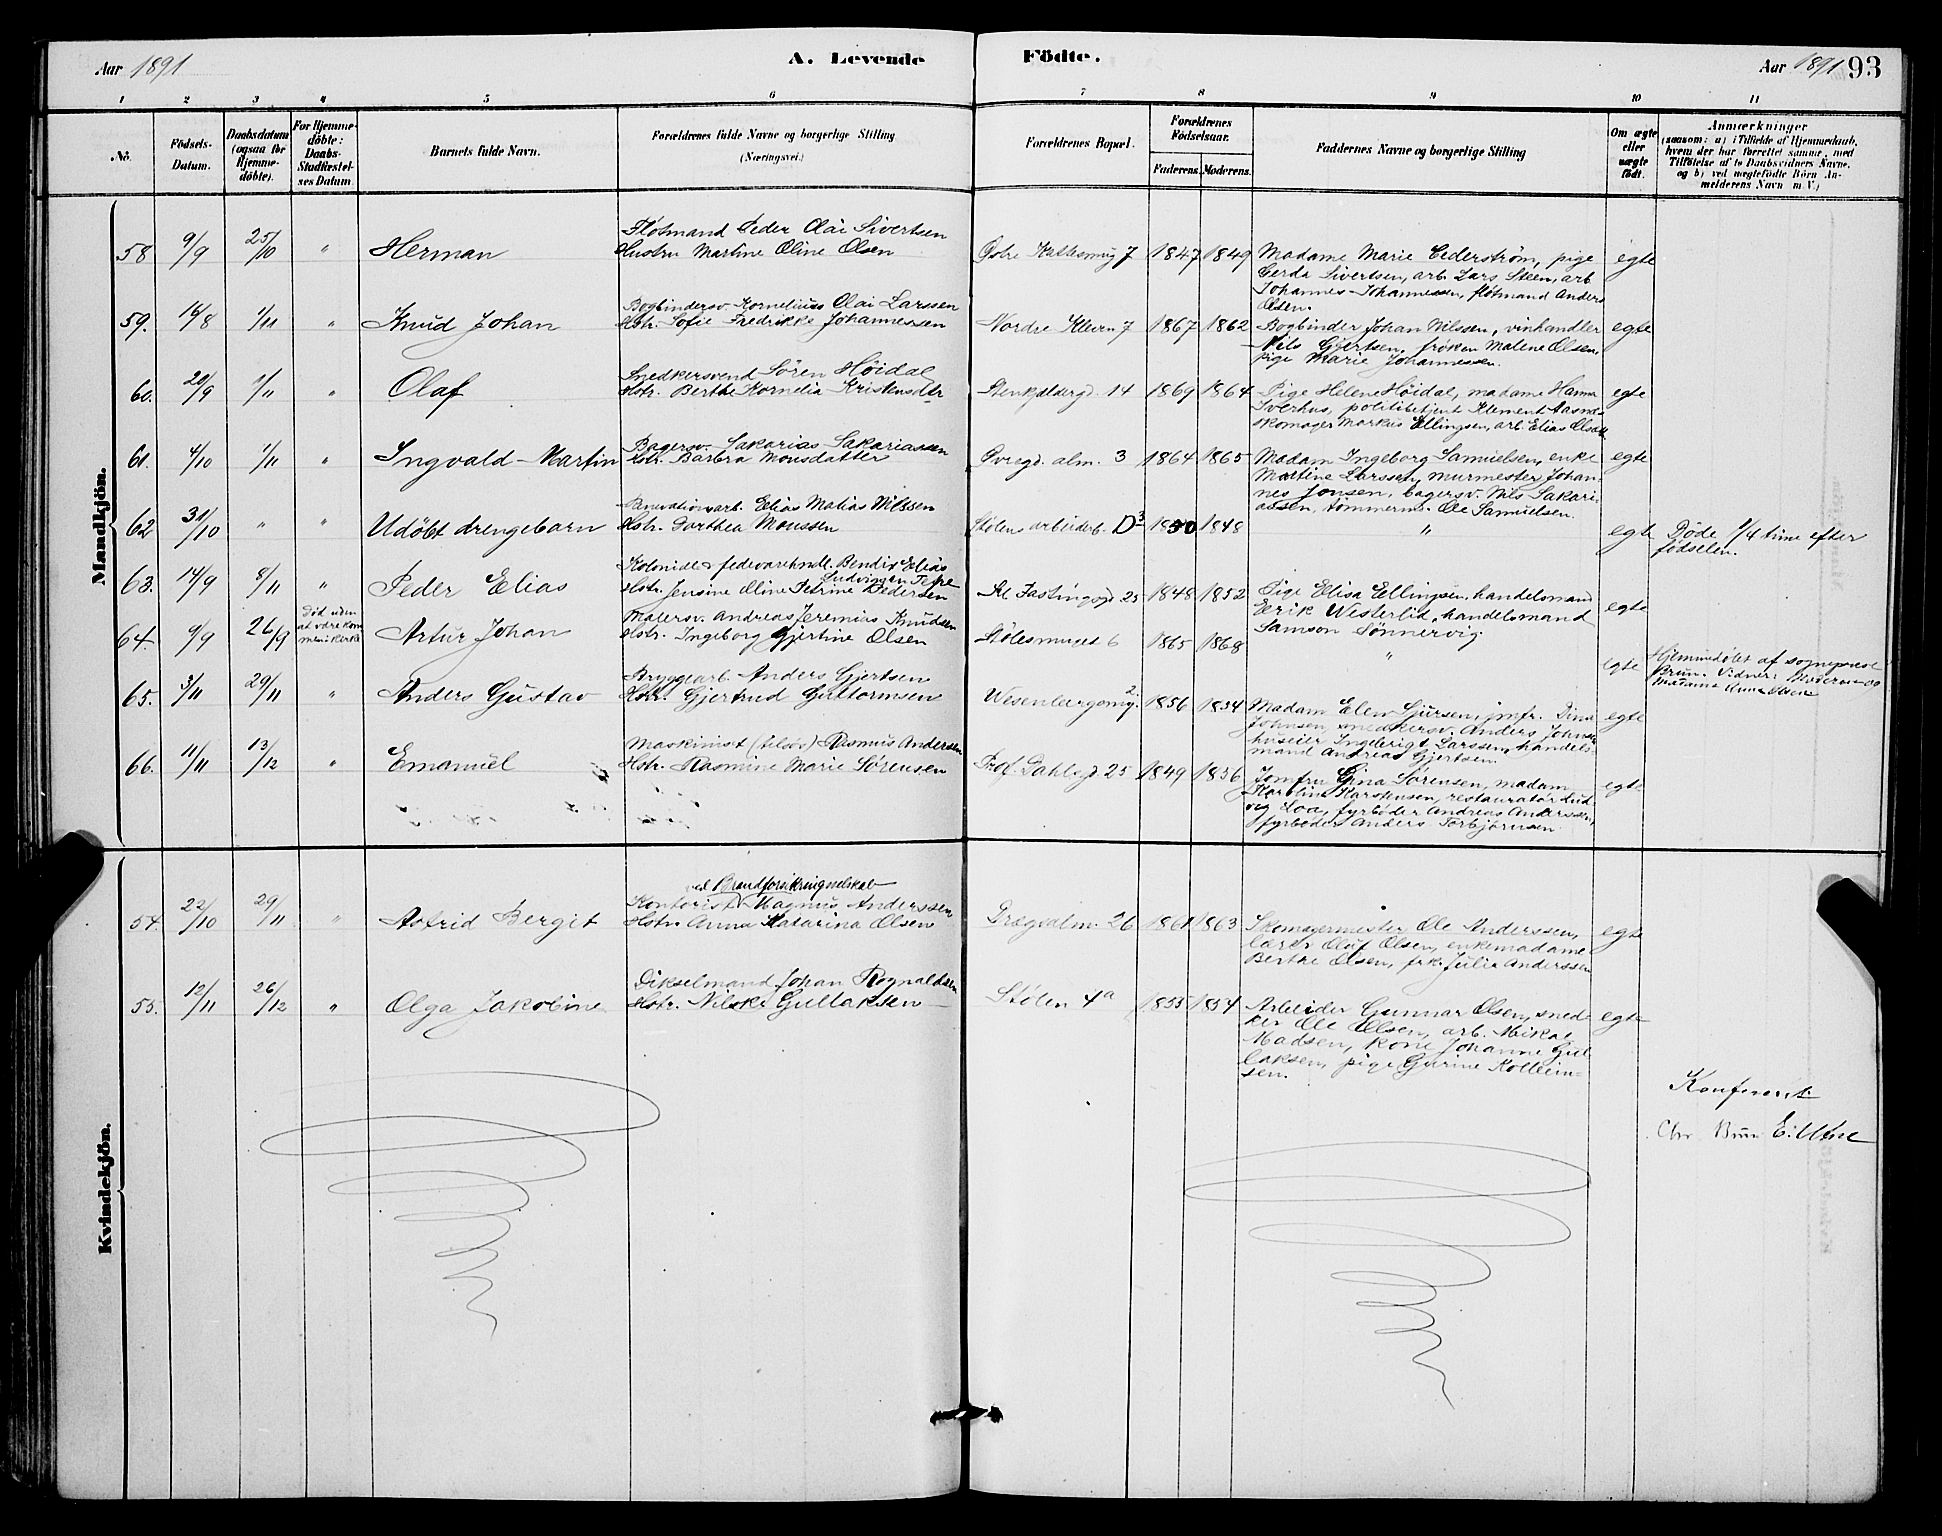 Aar 1891
A. Levende Födte.
Aar 1891 93
1 2 3 4 5 6 7 8 9 10 11
No.
Födsels-Datum.
Daabsdatum (ogsaa for Hjemme-döbte).
For Hjemme-döbte: Daabs-Stadfæstel-ses Datum
Barnets fulde Navn.
Forældrenes fulde Navne og borgerlige Stilling
(Næringsvei.)
Forældrenes Bopæl.
Forældrenes Födselsaar.
Faderens. Moderens.
Faddernes Navne og borgerlige Stilling
Om ægte eller uægte födt.
Anmærkninger
(saasom: a) i Tilfælde af Hjemmedaab,
hvem der har forrettet samme, med
Tilföielse af to Daabsvidners Navne,
og b) ved uægtefödte Börn An-
melderens Navn m.V.)
Mandkjön.
58 9/9 25/10 " Herman
Fløtmand Peder Olai Sivertsen
Hustru Martine Oline Olsen
Østre Kattesmug 7 1847 1849
Madame Marie Cederstrøm, pige
Gerda Sivertsen, arb. Lars Steen, arb
Johannes Johannessen, fløtmand Anders
Olsen.
egte
59. 16/8 1/11 " Knud Johan
Bogbindersv. Kornelius Olai Larssen
Hstr. Sofie Fredrikke Johannessen
Nordre Kleven 7 1867 1862
Bogbinder Johan Nilssen, vinhandler
Nils Gjertsen, frøken Malene Olsen,
pige Marie Johannessen.
egte
60. 20/9 1/11 " Olaf
Snedkersvend Sören Höidal
Hstr. Berthe Kornelia Kristensdtr
Stenkjeldergd. 14 1869 1864
Pige Helene Høidal, madame Hanna
Iverhus, politibetjent Klement Aasnes
skomager Markus Ellingsen, arb. Elias Olsen
egte
61. 4/10 1/11 " Ingvald Martin
Bagersv. Sakarias Sakariassen
Hstr. Barbra Monsdatter
Øvregd. alm. 3 1864 1865
Madam Ingeborg Samuelsen, enke
Martine Larssen, murmester Johan-
nes Jonsen, bagersv. Nils Sakari-
assen, tømmerm. Ole Samuelsen.
egte
62 31/10 " " Udöbt drengebarn
Elias Matias Nilssen
Hstr. Dorthea Monssen
Stølens arbeiderb. D3 1850 1848
"
egte
Døde 1/4 time efter
fødselen.
63. 14/9 8/11 " Peder Elias
Kolonial & fedevarehndl. Bendix Elias
Ludvigsen
Hstr. Jensine Oline Petrine Pedersen
Kl. Fastingsgd 25 1848 1852
Pige Elisa Ellingsen, handelsmand
Erik Westerlid, handelsmand
Samson Sönnervig.
egte
64. 9/9 26/9
Død uden
at være kom
men i kirke
Artur Johan
Malersv. Andreas Jeremias Knudsen
Hstr. Ingeborg Gjertine Olsen
Stølesmuget 6 1865 1868
"
egte
Hjemmedøbt af sogneprest
Brun. Vidner: Moderen og
Madame Anna Olsen
65. 3/11 29/11 " Anders Gustav
Bryggearb. Anders Gjertsen
Hstr. Gjertrud Guttormsen
Wesenbergsmg. 2 1856 1854
Madam Elen Sjursen, jmfr. Dina
Johnsen, snedkersv. Anders Johnsen
huseier Ingebrigt Larssen, handels-
mand Andreas Gjertsen.
egte
66. 11/11 13/12 " Emanuel
Maskinist (tilsøs) Rasmus Andersen
Hstr. Rasmine Marie Sörensen
Prof. Dahlsgd 25 1849 1856
Jomfru Gina Sörensen, madam
Karoline Karstensen, restauratør Lud-
vig Loa, fyrbøder Andreas Anderssen,
fyrbøder Anders Torbjörnsen.
egte
Kvindekjön.
54. 22/10 29/11 " Astrid Bergit
ved Brandforsikringsselskab
Kontorist Magnus Anderssen
Hstr. Anna Katarina Olsen
Drægsalm. 26 1861 1863
Skomagermester Ole Anderssen,
lærer Olaf Olsen, enkemadame
Berthe Olsen, frk. Julie Anderssen
egte
55. 12/11 26/12 " Olga Jakobine
Dikselmand Johan Rognaldsen
Hstr. Nilske Gullaksen
Stølen 4a 1855 1854
Arbeider Gunnar Olsen, sned-
ker Ole Olsen, arb. Mikal
Madsen, kone Johanne Gul-
laksen, pige Gurine Kolleim-
sen.
egte
Konfereret.
Chr Brun E. Utne